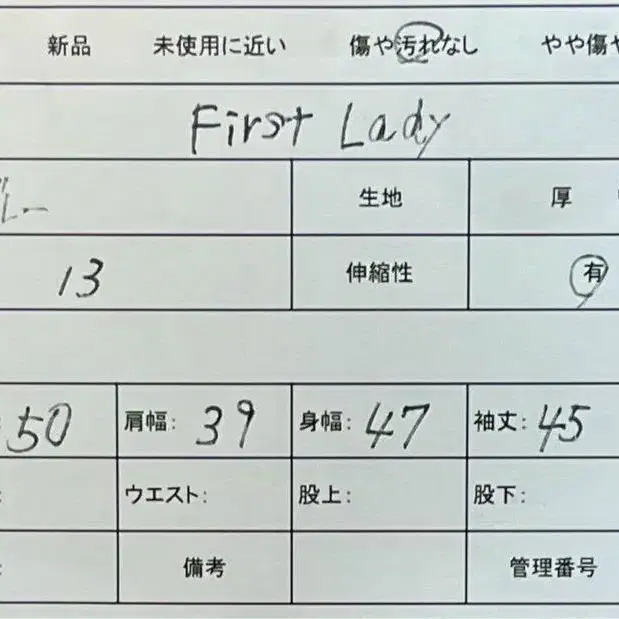 新品 未使用に近い 傷や汚れなし やや傷や
First Lady
生地 厚
13 伸縮性 有
50 肩幅: 39 身幅: 47 袖丈: 45
ウエスト: 股上: 股下:
備考 管理番号